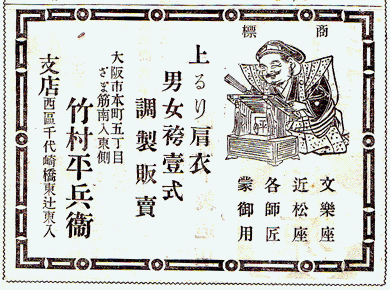 商標
文樂座
近松座
各師匠
蒙御用
上るり肩衣
男女袴壹式
調製販賣
大阪市本町五丁目
ざま筋南入東側
竹村平兵衞
支店西區千代崎橋東辻東入